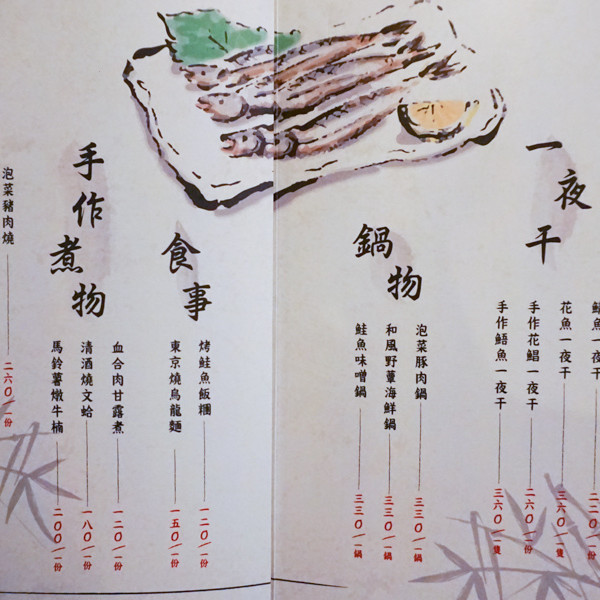 一夜干
魚一夜干
花魚一夜干 三六〇/一隻
手作花鯧一夜干 二六〇/一份
手作鮚魚一夜干 三六〇/一隻
鍋物
泡菜豚肉鍋 三三〇/一鍋
和風野蕈海鮮鍋 三三〇/一鍋
鮭魚味噌鍋 三三〇/一鍋
食事
烤鮭魚飯糰 一二〇/一份
東京燒烏龍麵 一五〇/一份
手作煮物
血合肉甘露煮 一二〇/一份
清酒燒文蛤 一八〇/一份
馬鈴薯燉牛楠 二〇〇/一份
泡菜豬肉燒 二六〇/一份